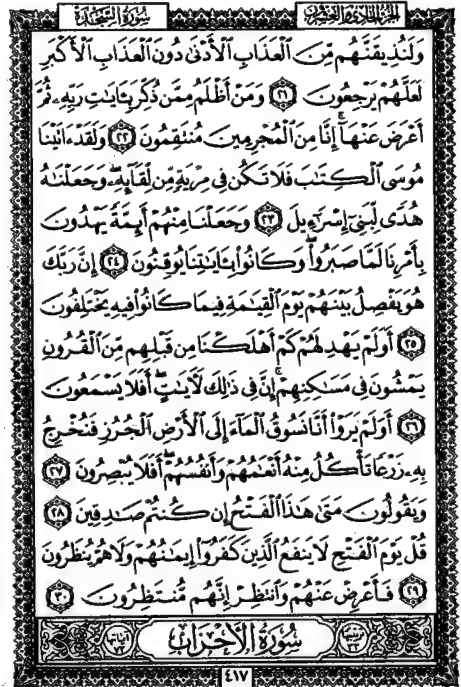 الجزء الحادي والعشرون سورة السجدة
وَلَنُذِيقَنَّهُم مِّنَ ٱلۡعَذَابِ ٱلۡأَدۡنَىٰ دُونَ ٱلۡعَذَابِ ٱلۡأَكۡبَرِ
لَعَلَّهُمۡ يَرۡجِعُونَ ٢١ وَمَنۡ أَظۡلَمُ مِمَّن ذُكِّرَ بِـَٔايَٰتِ رَبِّهِۦ ثُمَّ
أَعۡرَضَ عَنۡهَآۚ إِنَّا مِنَ ٱلۡمُجۡرِمِينَ مُنتَقِمُونَ ٢٢ وَلَقَدۡ ءَاتَيۡنَا
مُوسَى ٱلۡكِتَٰبَ فَلَا تَكُن فِي مِرۡيَةٖ مِّن لِّقَآئِهِۦۖ وَجَعَلۡنَٰهُ
هُدٗى لِّبَنِيٓ إِسۡرَٰٓءِيلَ ٢٣ وَجَعَلۡنَا مِنۡهُمۡ أَئِمَّةٗ يَهۡدُونَ
بِأَمۡرِنَا لَمَّا صَبَرُواْۖ وَكَانُواْ بِـَٔايَٰتِنَا يُوقِنُونَ ٢٤ إِنَّ رَبَّكَ
هُوَ يَفۡصِلُ بَيۡنَهُمۡ يَوۡمَ ٱلۡقِيَٰمَةِ فِيمَا كَانُواْ فِيهِ يَخۡتَلِفُونَ
٢٥ أَوَلَمۡ يَهۡدِ لَهُمۡ كَمۡ أَهۡلَكۡنَا مِن قَبۡلِهِم مِّنَ ٱلۡقُرُونِ
يَمۡشُونَ فِي مَسَٰكِنِهِمۡۚ إِنَّ فِي ذَٰلِكَ لَأٓيَٰتٍۚ أَفَلَا يَسۡمَعُونَ
٢٦ أَوَلَمۡ يَرَوۡاْ أَنَّا نَسُوقُ ٱلۡمَآءَ إِلَى ٱلۡأَرۡضِ ٱلۡجُرُزِ فَنُخۡرِجُ
بِهِۦ زَرۡعٗا تَأۡكُلُ مِنۡهُ أَنۡعَٰمُهُمۡ وَأَنفُسُهُمۡۚ أَفَلَا يُبۡصِرُونَ ٢٧
وَيَقُولُونَ مَتَىٰ هَٰذَا ٱلۡفَتۡحُ إِن كُنتُمۡ صَٰدِقِينَ ٢٨
قُلۡ يَوۡمَ ٱلۡفَتۡحِ لَا يَنفَعُ ٱلَّذِينَ كَفَرُوٓاْ إِيمَٰنُهُمۡ وَلَا هُمۡ يُنظَرُونَ
٢٩ فَأَعۡرِضۡ عَنۡهُمۡ وَٱنتَظِرۡ إِنَّهُم مُّنتَظِرُونَ ٣٠
ترتيبها ٣٣ سورة الأحزاب آياتها ٧٣
٤١٧